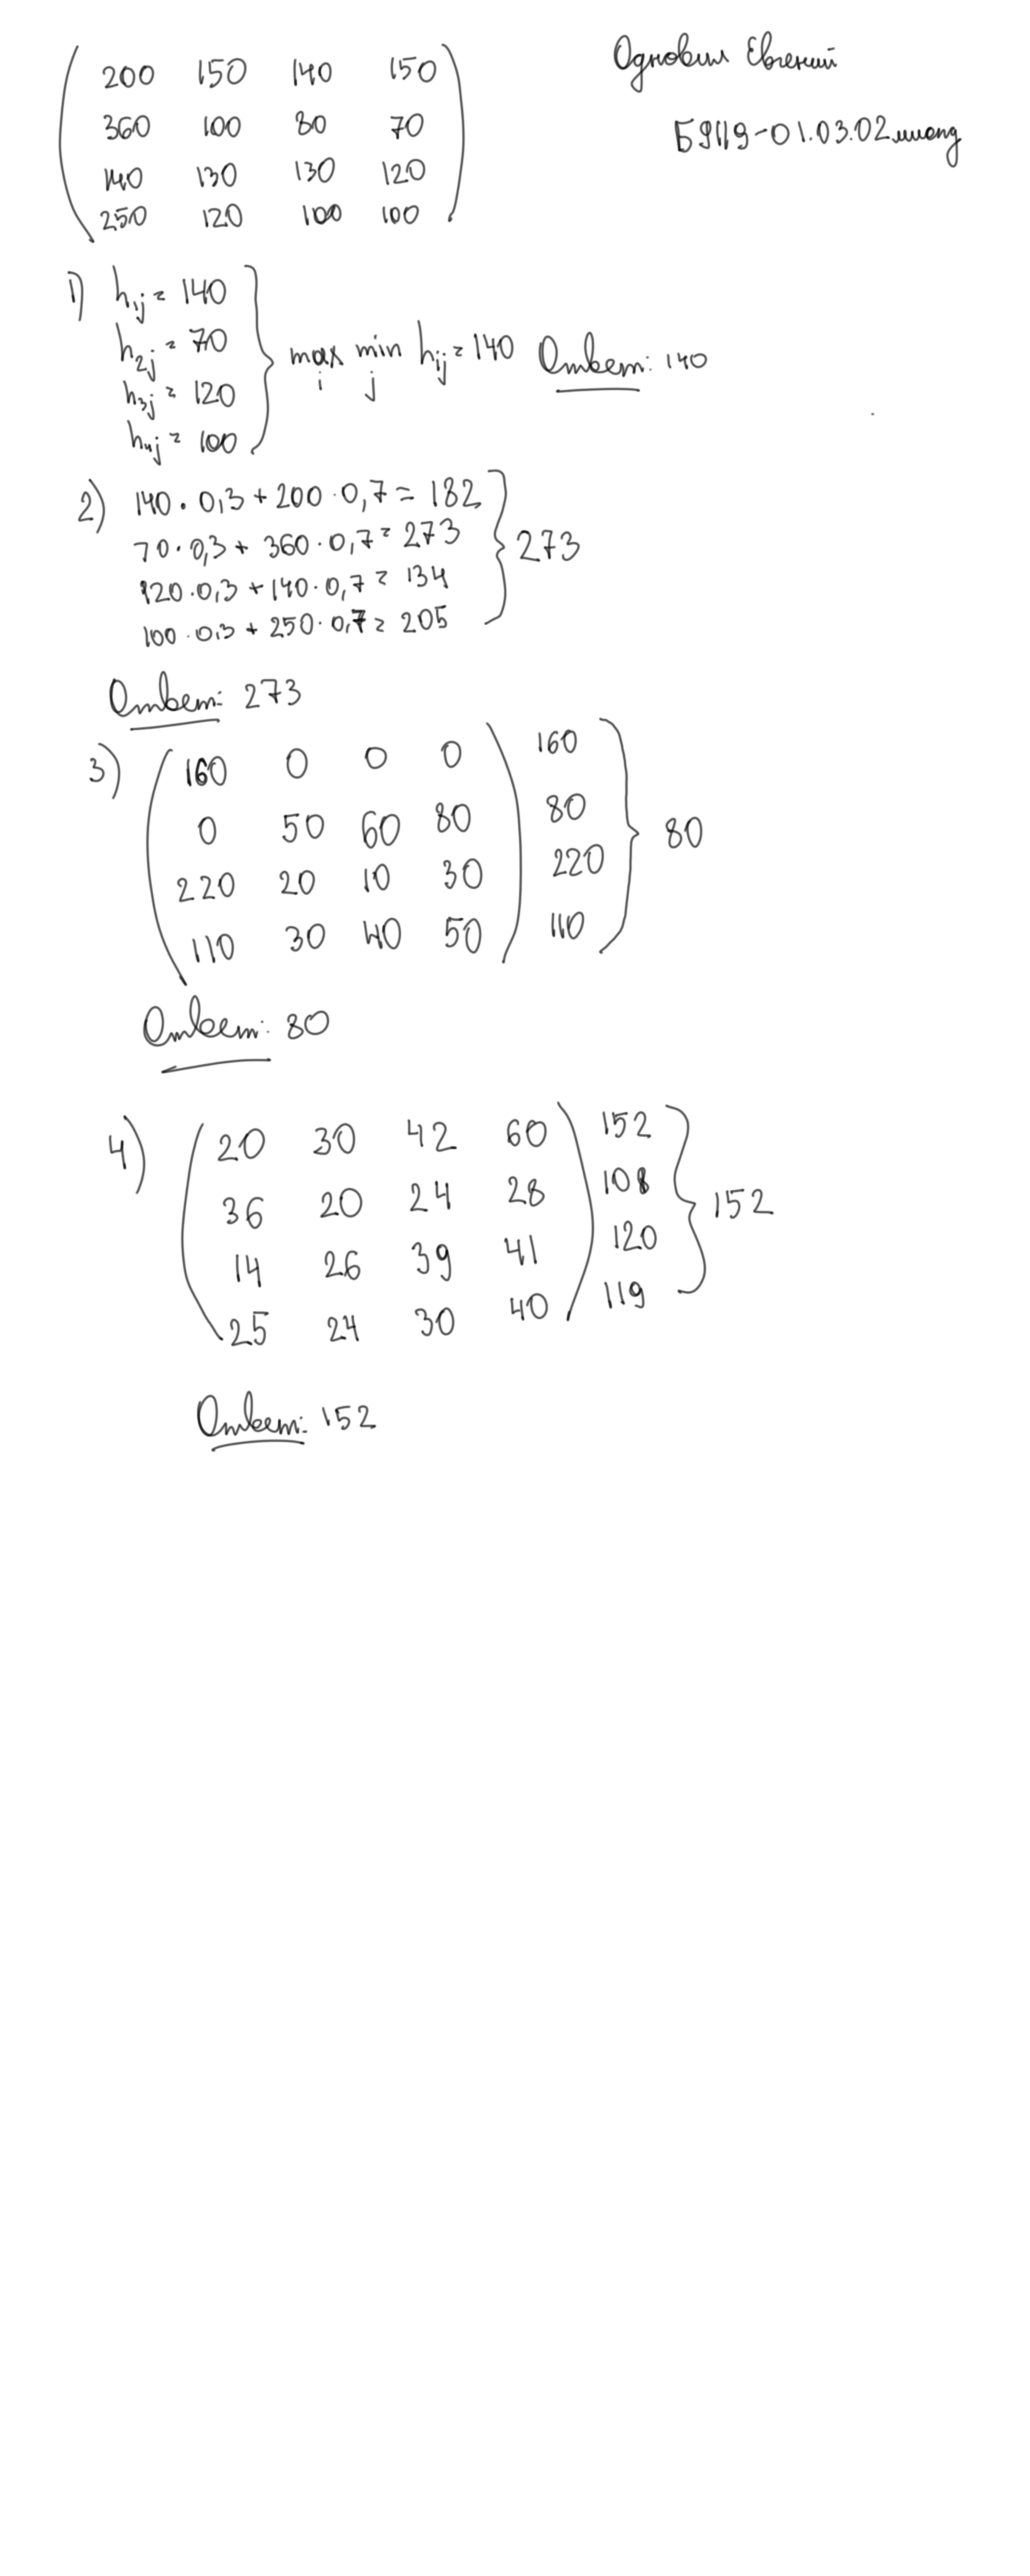 200 150 140 150
360 100 80 70
140 130 130 120
250 120 100 100
Евгений
Б9119-01.03.02
1) h₁ⱼ = 140
h₂ⱼ = 70
h₃ⱼ = 120
h₄ⱼ = 100
max min hᵢⱼ = 140 Ответ: 140
i j
2) 140 · 0,3 + 200 · 0,7 = 182
70 · 0,3 + 360 · 0,7 = 273
120 · 0,3 + 140 · 0,7 = 134
100 · 0,3 + 250 · 0,7 = 205
273
Ответ: 273
3) 160 0 0 0 160
0 50 60 80 80
220 20 10 30 220
110 30 40 50 110
80
Ответ: 80
4) 20 30 42 60 152
36 20 24 28 108
14 26 39 41 120
25 24 30 40 119
152
Ответ: 152